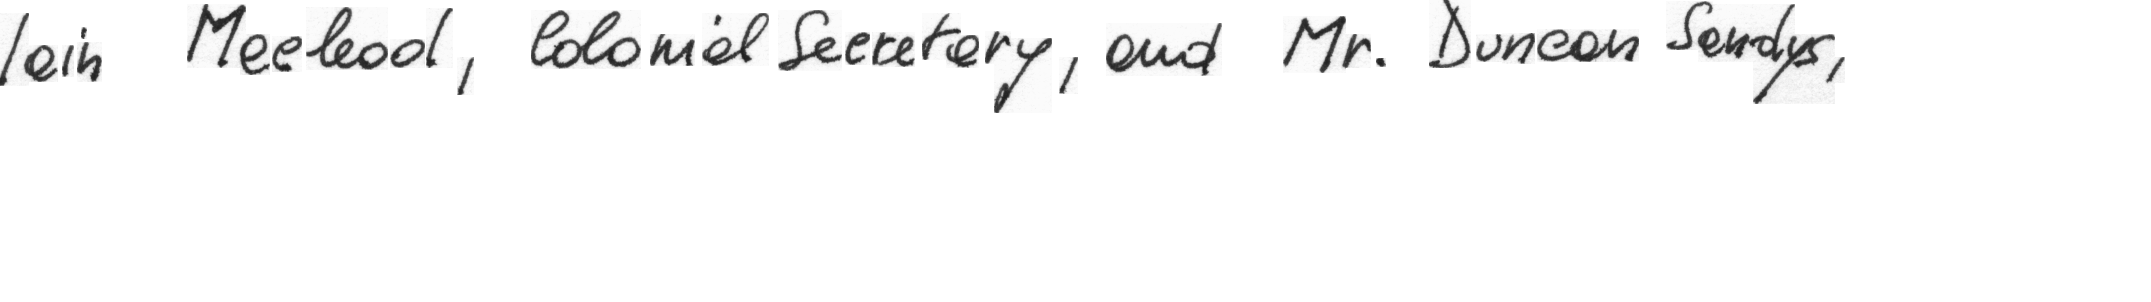 Iain Macleod, Colonial Secretary, and Mr. Duncan Sandys,